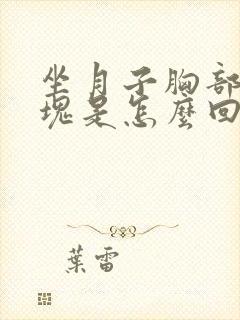 坐月子胸部
塊是怎麼回
葉雷